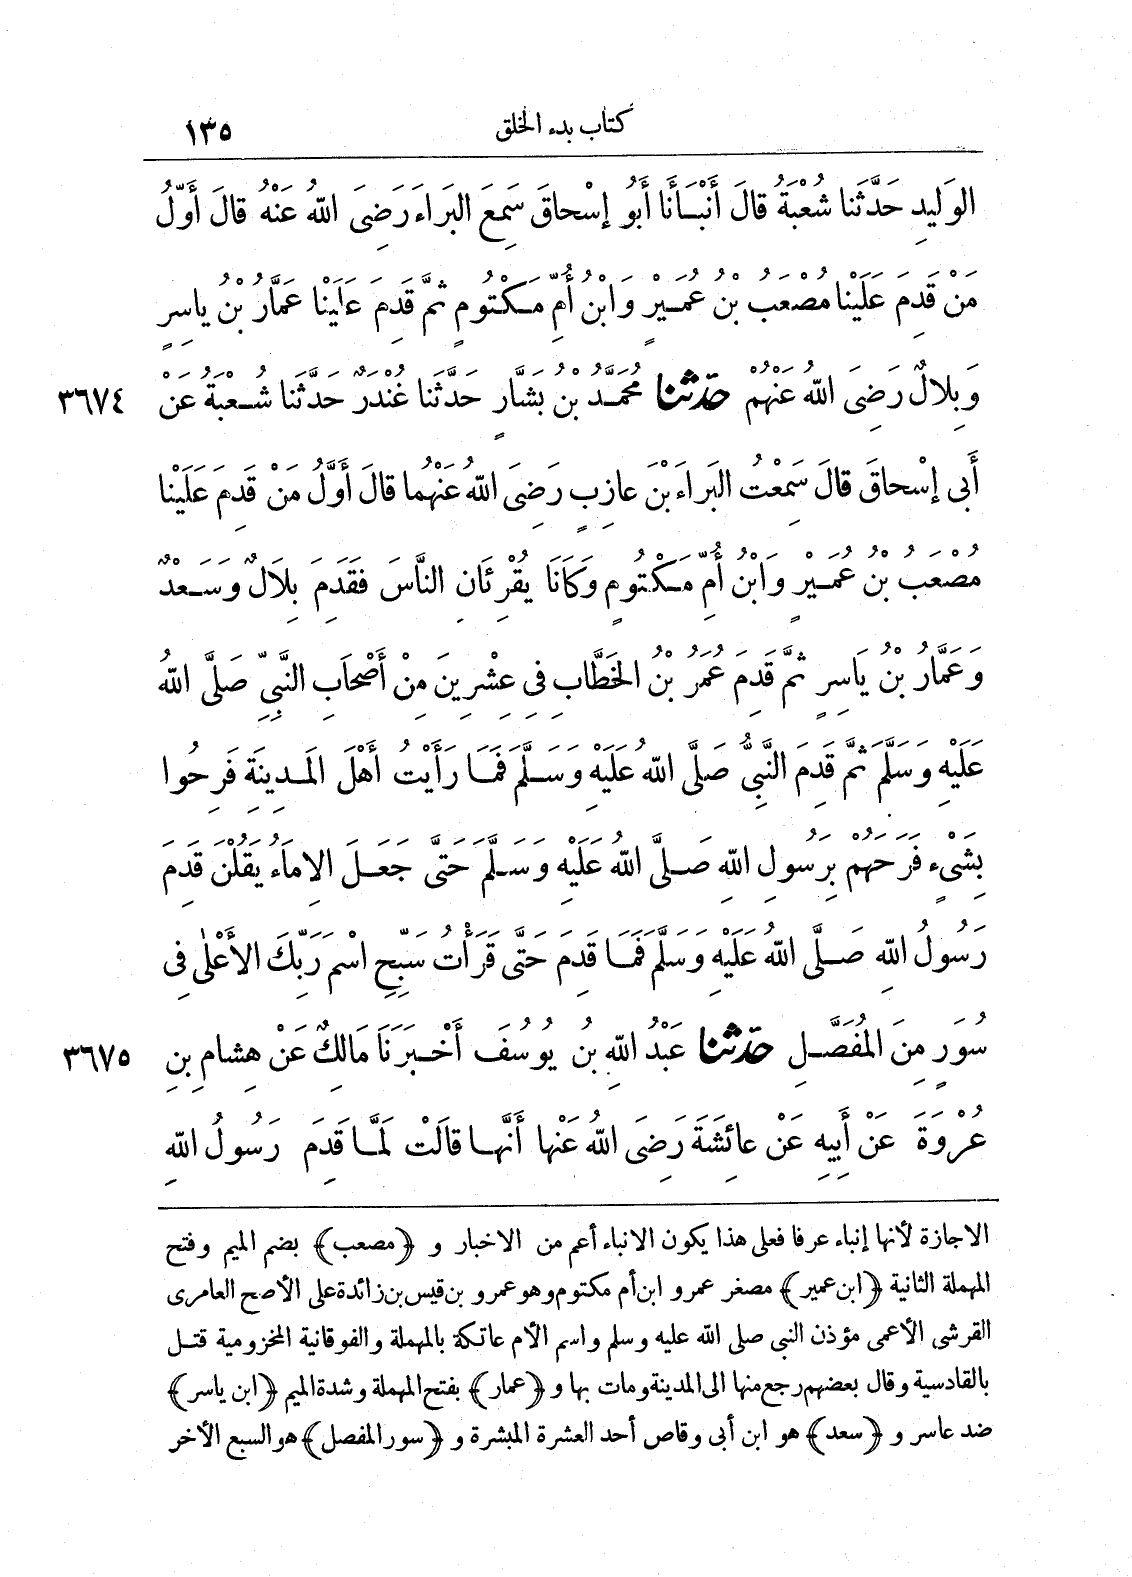 كتاب بدء الخلق ١٣٥
الوَلِيدِ حَدَّثَنَا شُعْبَةُ قالَ أَنْبَأَنَا أَبُو إِسْحاقَ سَمِعَ البَرَاءَ رَضِىَ اللّٰهُ عَنْهُ قالَ أَوَّلُ
مَنْ قَدِمَ عَلَيْنا مُصْعَبُ بْنُ عُمَيْرٍ وَابْنُ أُمِّ مَكْتُومٍ ثُمَّ قَدِمَ عَلَيْنا عَمَّارُ بْنُ ياسِرٍ
وَبِلالٌ رَضِىَ اللّٰهُ عَنْهُمْ حدّثنا مُحَمَّدُ بْنُ بَشَّارٍ حَدَّثَنا غُنْدَرٌ حَدَّثَنا شُعْبَةُ عَنْ ٣٦٧٤
أَبِى إِسْحاقَ قالَ سَمِعْتُ البَرَاءَ بْنَ عازِبٍ رَضِىَ اللّٰهُ عَنْهُما قالَ أَوَّلُ مَنْ قَدِمَ عَلَيْنا
مُصْعَبُ بْنُ عُمَيْرٍ وَابْنُ أُمِّ مَكْتُومٍ وَكَانَا يُقْرِئَانِ النَّاسَ فَقَدِمَ بِلَالٌ وَسَعْدٌ
وَعَمَّارُ بْنُ يَاسِرٍ ثُمَّ قَدِمَ عُمَرُ بْنُ الخَطَّابِ فِى عِشْرِينَ مِنْ أَصْحَابِ النَّبِىِّ صَلَّى اللّٰهُ
عَلَيْهِ وَسَلَّمَ ثُمَّ قَدِمَ النَّبِىُّ صَلَّى اللّٰهُ عَلَيْهِ وَسَلَّمَ فَمَا رَأَيْتُ أَهْلَ المَدِينَةِ فَرِحُوا
بِشَىْءٍ فَرَحَهُمْ بِرَسُولِ اللّٰهِ صَلَّى اللّٰهُ عَلَيْهِ وَسَلَّمَ حَتَّى جَعَلَ الإِمَاءُ يَقُلْنَ قَدِمَ
رَسُولُ اللّٰهِ صَلَّى اللّٰهُ عَلَيْهِ وَسَلَّمَ فَمَا قَدِمَ حَتَّى قَرَأْتُ سَبِّحِ اسْمَ رَبِّكَ الأَعْلٰى فِى
سُوَرٍ مِنَ المُفَصَّلِ حدّثنا عَبْدُ اللّٰهِ بْنُ يُوسُفَ أَخْبَرَنَا مَالِكٌ عَنْ هِشامِ بْنِ ٣٦٧٥
عُرْوَةَ عَنْ أَبِيهِ عَنْ عائِشَةَ رَضِىَ اللّٰهُ عَنْها أَنَّها قالَتْ لَمَّا قَدِمَ رَسُولُ اللّٰهِ
الاجازة لأنها إنباء عرفا فعلى هذا يكون الانباء أعم من الاخبار و ﴿مصعب﴾ بضم الميم وفتح
المهملة الثانية ﴿ابن عمير﴾ مصغر عمرو ابن أم مكتوم وهو عمرو بن قيس بن زائدة على الأصح العامرى
القرشى الأعمى مؤذن النبى صلى الله عليه وسلم واسم الأم عاتكة بالمهملة والفوقانية المخزومية قتل
بالقادسية وقال بعضهم رجع منها الى المدينة ومات بها و ﴿عمار﴾ بفتح المهملة وشدة الميم ﴿ابن ياسر﴾
ضد عاسر و ﴿سعد﴾ هو ابن أبى وقاص أحد العشرة المبشرة و ﴿سور المفصل﴾ هو السبع الأخر